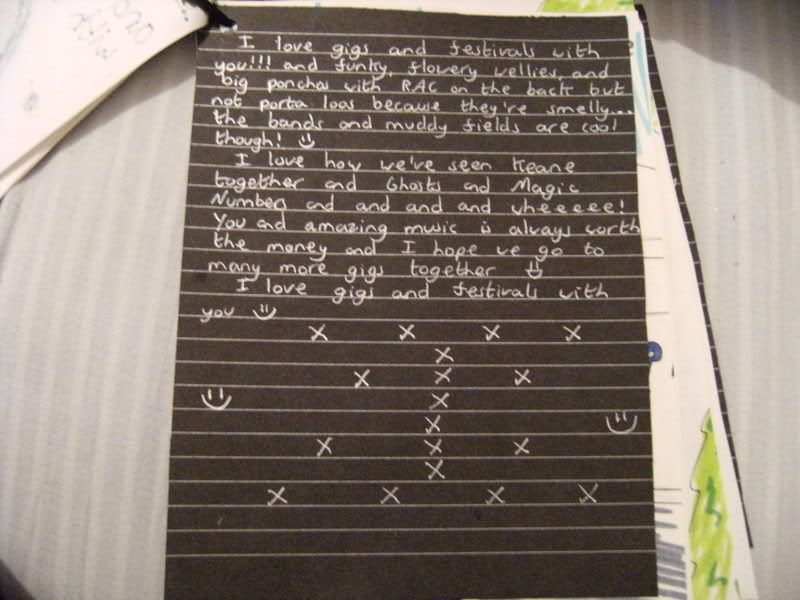 I love gigs and festivals with
you!!! and funky, flowery wellies, and
big ponchos with RAC on the back but
not porta loos because they're smelly...
the bands and muddy fields are cool
though! :)
I love how we've seen Keane
together and Ghosts and Magic
Numbers and and and and wheeeee!
You and amazing music is always worth
the money and I hope we go to
many more gigs together :)
I love gigs and festivals with
you :)
x x x x
x
x x x
x
x
x x x
x
x x x x